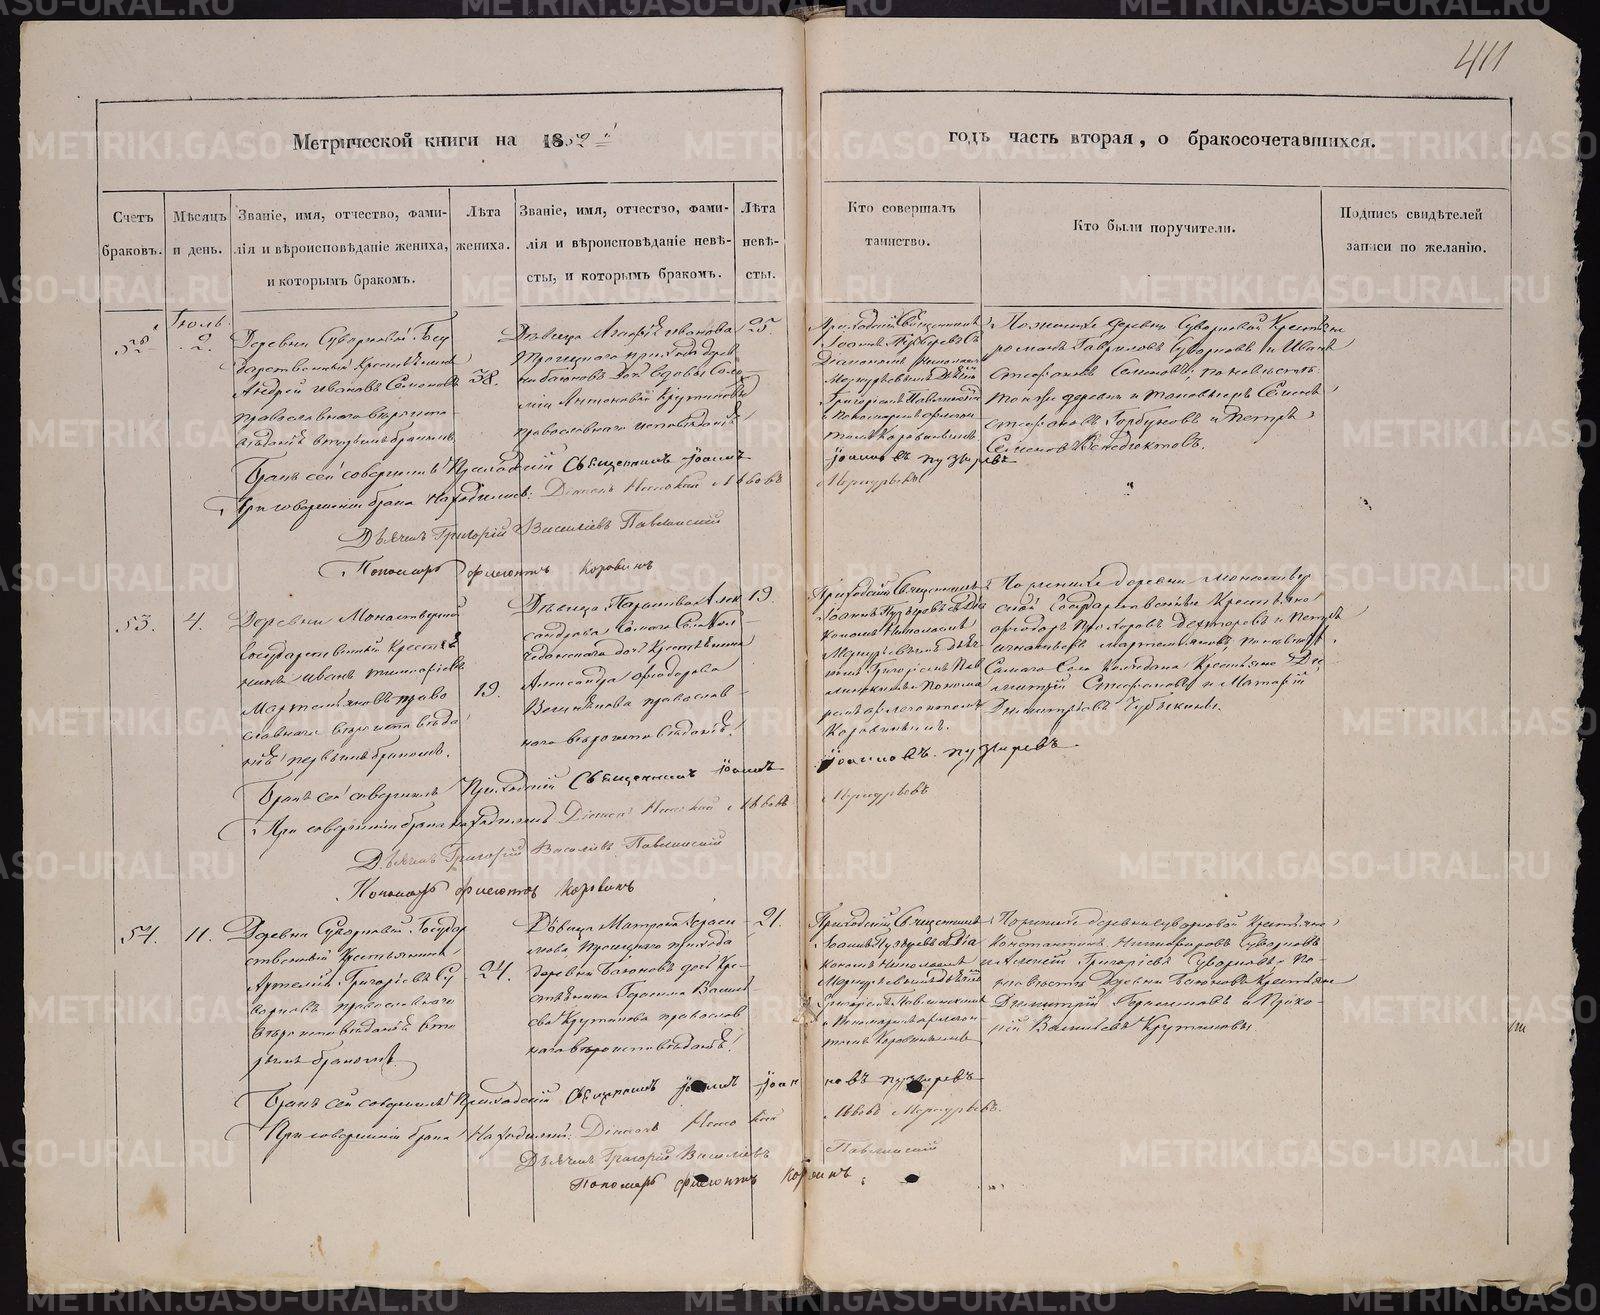 411
Метрической книги на 1852й
годъ часть вторая, о бракосочетавшихся.
Счетъ браковъ.
Мѣсяцъ и день.
Званіе, имя, отчество, фами-
лія и вѣроисповѣданіе жениха,
и которымъ бракомъ.
Лѣта
жениха.
Званіе, имя, отчество, фами-
лія и вѣроисповѣданіе невѣ-
сты, и которымъ бракомъ.
Лѣта
невѣ-
сты.
Кто совершалъ
таинство.
Кто были поручители.
Подпись свидѣтелей
записи по желанію.
52
Іюль.
2.
Деревни Суворковой Госу
дарственный Крестьянинъ
Андрей Ивановъ Семеновъ
православнаго вѣроиспо
вѣданія вторымъ бракомъ
38.
Дѣвица Агафія Иванова
Троицкаго прихода дерев
вдовы
православнаго исповѣданія
25.
Приходскій Священникъ
Іоаннъ Пузыревъ съ
Діакономъ Николаемъ
Меркурьевымъ Дьячк
Григоріемъ Павлинскимъ
и Пономаремъ
Коровинымъ
По женихѣ деревни Суворковой Крестьяне
Романъ Гавриловъ Суворковъ и Иванъ
Стефановъ Семеновъ; по невѣстѣ
той же деревни
Стефановъ Горбуновъ и Петръ
Семеновъ
Бракъ сей совершилъ Приходскій Священникъ Іоаннъ Іоанновъ Пузыревъ
При совершеніи брака находились: Діаконъ Николай Львовъ Меркурьевъ
Дьячекъ Григорій Васильевъ Павлинскій
Пономарь Филегонтъ Коровинъ
53.
4.
Деревни Монастырской
Государственный Крестья
нинъ Иванъ
Мартемьяновъ право
славнаго вѣроисповѣда
нія первымъ бракомъ.
19.
Дѣвица Параскева Алек
сандрова, Самаго Села Кол
чеданскаго дочь Крестьянина
Александра Феодорова
православ
наго вѣроисповѣданія.
19.
Приходскій Священникъ
Іоаннъ Пузыревъ съ Діа
кономъ Николаемъ
Меркурьевымъ дьяч
комъ Григоріемъ Пав
линскимъ и Понома
ремъ Филегонтомъ
Коровинымъ.
По женихѣ деревни Монастыр
ской Государственные Крестьяне
Феодоръ Прохоровъ Дехтеревъ и Петръ
Игнатьевъ Мартемьяновъ, по невѣстѣ
Самаго Села Колчедана Крестьяне Ди
митрій Стефановъ и Матфей
Димитріевъ Губкины.
Бракъ сей совершилъ Приходскій Священникъ Іоаннъ Іоанновъ Пузыревъ
При совершеніи брака находились Діаконъ Николай Львовъ Меркурьевъ
Дьячекъ Григорій Васильевъ Павлинскій
Пономарь Филегонтъ Коровинъ
54.
11.
Деревни Суворковой Государ
ственный Крестьянинъ
Артемій Григорьевъ Су
ворковъ православнаго
вѣроисповѣданія вто
рымъ бракомъ.
24.
Дѣвица Матрона Гераси
мова, Троицкаго прихода
деревни Баюновъ дочь Кре
стьянина Герасима Василь
ева Крутикова православ
наго вѣроисповѣданія.
21.
Приходскій Священникъ
Іоаннъ Пузыревъ съ Діа
кономъ Николаемъ
Меркурьевымъ дьячк
Григоріемъ Павлинскимъ
и Пономаремъ Филегон
томъ Коровинымъ
По женихѣ деревни Суворковой Крестьяне
Константинъ Никифоровъ Суворковъ
и Алексѣй Григорьевъ Суворковъ, по
невѣстѣ Деревни Баюновъ Крестьяне
Димитрій Герасимовъ и Проко-
пій Васильевъ Крутиковы
Бракъ сей совершилъ Приходскій Священникъ Іоаннъ Іоанновъ Пузыревъ
При совершеніи брака находились: Діаконъ Николай Львовъ Меркурьевъ.
Дьячекъ Григорій Васильевъ Павлинскій
Пономарь Филегонтъ Коровинъ
METRIKI.GASO-URAL.RU